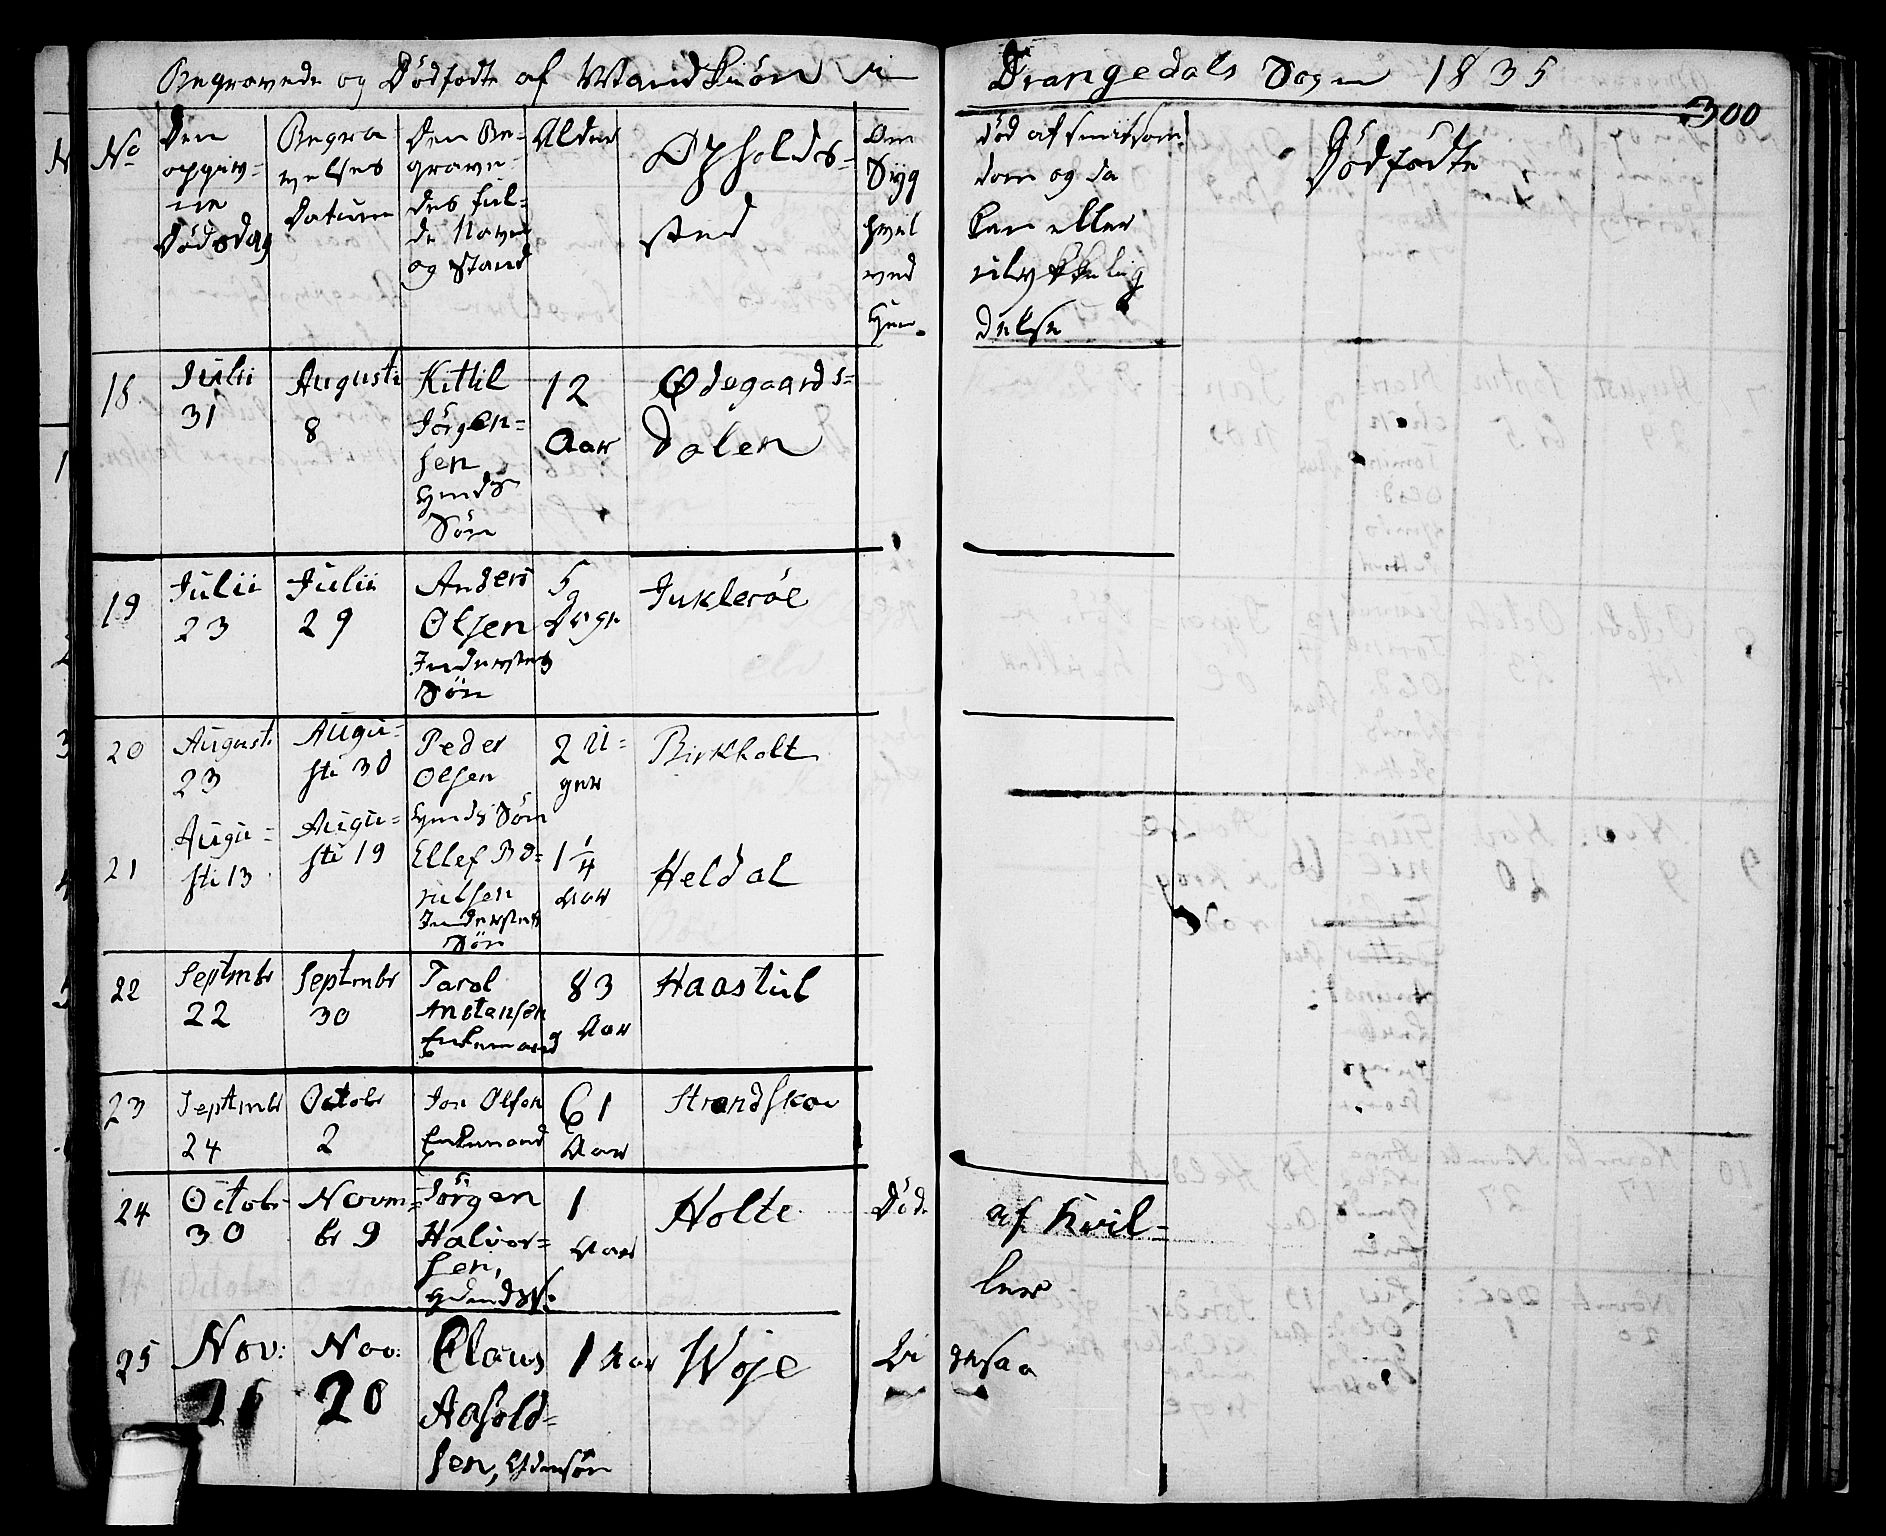 Begravede og Dödfödte af Mandkiön i Drangedals Sogn 1835
300
No
Den opgivne Dödsdag
Begravelses Datum
Den Begravedes fulde Navn og Stand
Alder
Opholdssted
Om Syg hvil ved Hen-
död af smitsom
dom og da
ken eller
ulykkelig
delse
Dödfödte
18 Julii 31 Augusti 8 Kittil Jörgensen Gmds Sön 12 Aar Ødegaardsdalen
19 Julii 23 Julii 29 Anders Olsen Inderstes Sön 5 Dage Juklerøe
20 Augusti 23 Augusti 30 Peder Olsen Gmds Sön 2 Uger Birkholt
21 Augusti 13 Augusti 19 Ellef Inderstes Sön 1 1/4 Aar Heldal
22 Septmbr 22 Septmbr 30 Tarol Anstensen Enkemand 83 Aar Haastul
23 Septmbr 24 Octobr 2 Jon Olsen Enkemand 61 Aar Strandskov
24 Octobr 30 Novmbr 9 Jörgen Halvorsen, 1 Aar Holte Död af Kvil-
ler
25 Nov: Nov: 20 Claus Aasoldsen, 1 Aar Woje Li gesaa